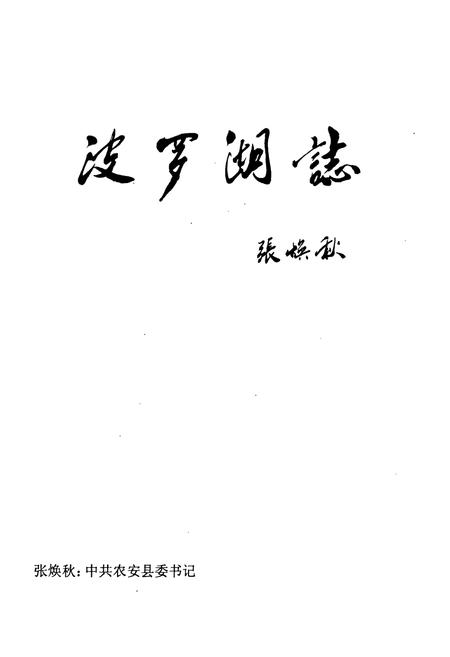 波罗湖誌
張焕秋
张焕秋：中共农安县委书记